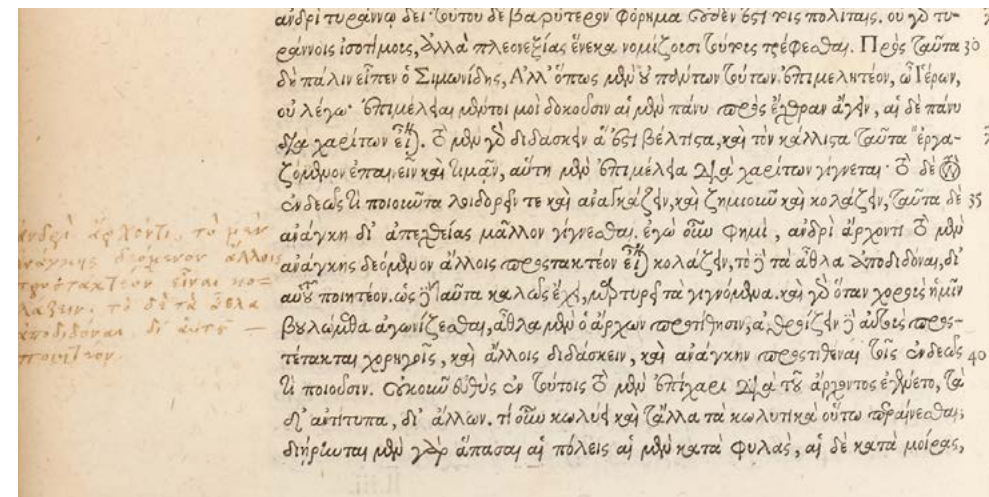 ἀνδρὶ τυράννῳ δεῖ· τούτου δὲ βαρύτερον φόρημα οὐδέν ἐστι τοῖς πολίταις. οὐ γὰρ τυ-
ράννοις ἰσοτίμοις, ἀλλὰ πλεονεξίας ἕνεκα νομίζουσι τούτους τρέφεσθαι. Πρὸς ταῦτα 30
δὴ πάλιν εἶπεν ὁ Σιμωνίδης, Ἀλλ' ὅπως μὲν οὐ πάντων τούτων ἐπιμελητέον, ὦ Ἱέρων,
οὐ λέγω· ἐπιμέλειαι μέντοι μοὶ δοκοῦσιν αἱ μὲν πάνυ πρὸς ἔχθραν ἄγειν, αἱ δὲ πάνυ
διὰ χαρίτων εἶναι. τὸ μὲν γὰρ διδάσκειν ἅ ἐστι βέλτιστα, καὶ τὸν κάλλιστα ταῦτα "ἐργα-
ζόμενον ἐπαινεῖν καὶ τιμᾶν, αὕτη μὲν ἐπιμέλεια διὰ χαρίτων γίγνεται· τὸ δὲ τὸν
ἐνδεῶς τι ποιοῦντα λοιδορεῖν τε καὶ ἀναγκάζειν, καὶ ζημιοῦν καὶ κολάζειν, ταῦτα δὲ 35
ἀνάγκη δι' ἀπεχθείας μᾶλλον γίγνεσθαι. ἐγὼ οὖν φημὶ, ἀνδρὶ ἄρχοντι τὸ μὲν
ἀνάγκης δεόμενον ἄλλοις προστακτέον εἶναι κολάζειν, τὸ δὲ τὰ ἆθλα ἀποδιδόναι, δι'
αὑτοῦ ποιητέον. ὡς δὲ ταῦτα καλῶς ἔχει, μαρτυρεῖ τὰ γιγνόμενα. καὶ γὰρ ὅταν χοροὺς ἡμῖν
βουλώμεθα ἀγωνίζεσθαι, ἆθλα μὲν ὁ ἄρχων προτίθησιν, ἀθροίζειν δὲ αὐτοὺς προς-
τέτακται χορηγοῖς, καὶ ἄλλοις διδάσκειν, καὶ ἀνάγκην προστιθέναι τοῖς ἐνδεῶς 40
τι ποιοῦσιν. οὐκοῦν εὐθὺς ἐν τούτοις τὸ μὲν ἐπίχαρι διὰ τοῦ ἄρχοντος ἐγένετο, τὰ
δ' ἀντίτυπα, δι' ἄλλων. τί οὖν κωλύει καὶ τἄλλα τὰ πολιτικὰ οὕτω περαίνεσθαι;
διῄρηνται μὲν γὰρ ἅπασαι αἱ πόλεις αἱ μὲν κατὰ φυλὰς, αἱ δὲ κατὰ μοίρας,
ἀνδρὶ ἄρχοντι. τὸ μὲν
ἀνάγκης δεόμενον ἄλλοις
προστακτέον εἶναι κο-
λάζειν. τὸ δὲ τὰ ἆθλα
ἀποδιδόναι δι' αὑτοῦ —
ποιητέον.